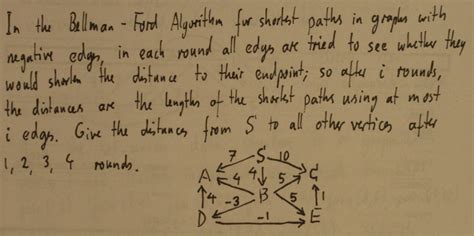 In the Bellman - Ford Algorithm for shortest paths in graphs with
negative edges, in each round all edges are tried to see whether they
would shorten the distance to their endpoint; so after i rounds,
the distances are the lengths of the shortest paths using at most
i edges. Give the distances from S to all other vertices after
1, 2, 3, 4 rounds.
7 S 10
A 4 4 5 C
4 -3 B 5 1
D -1 E